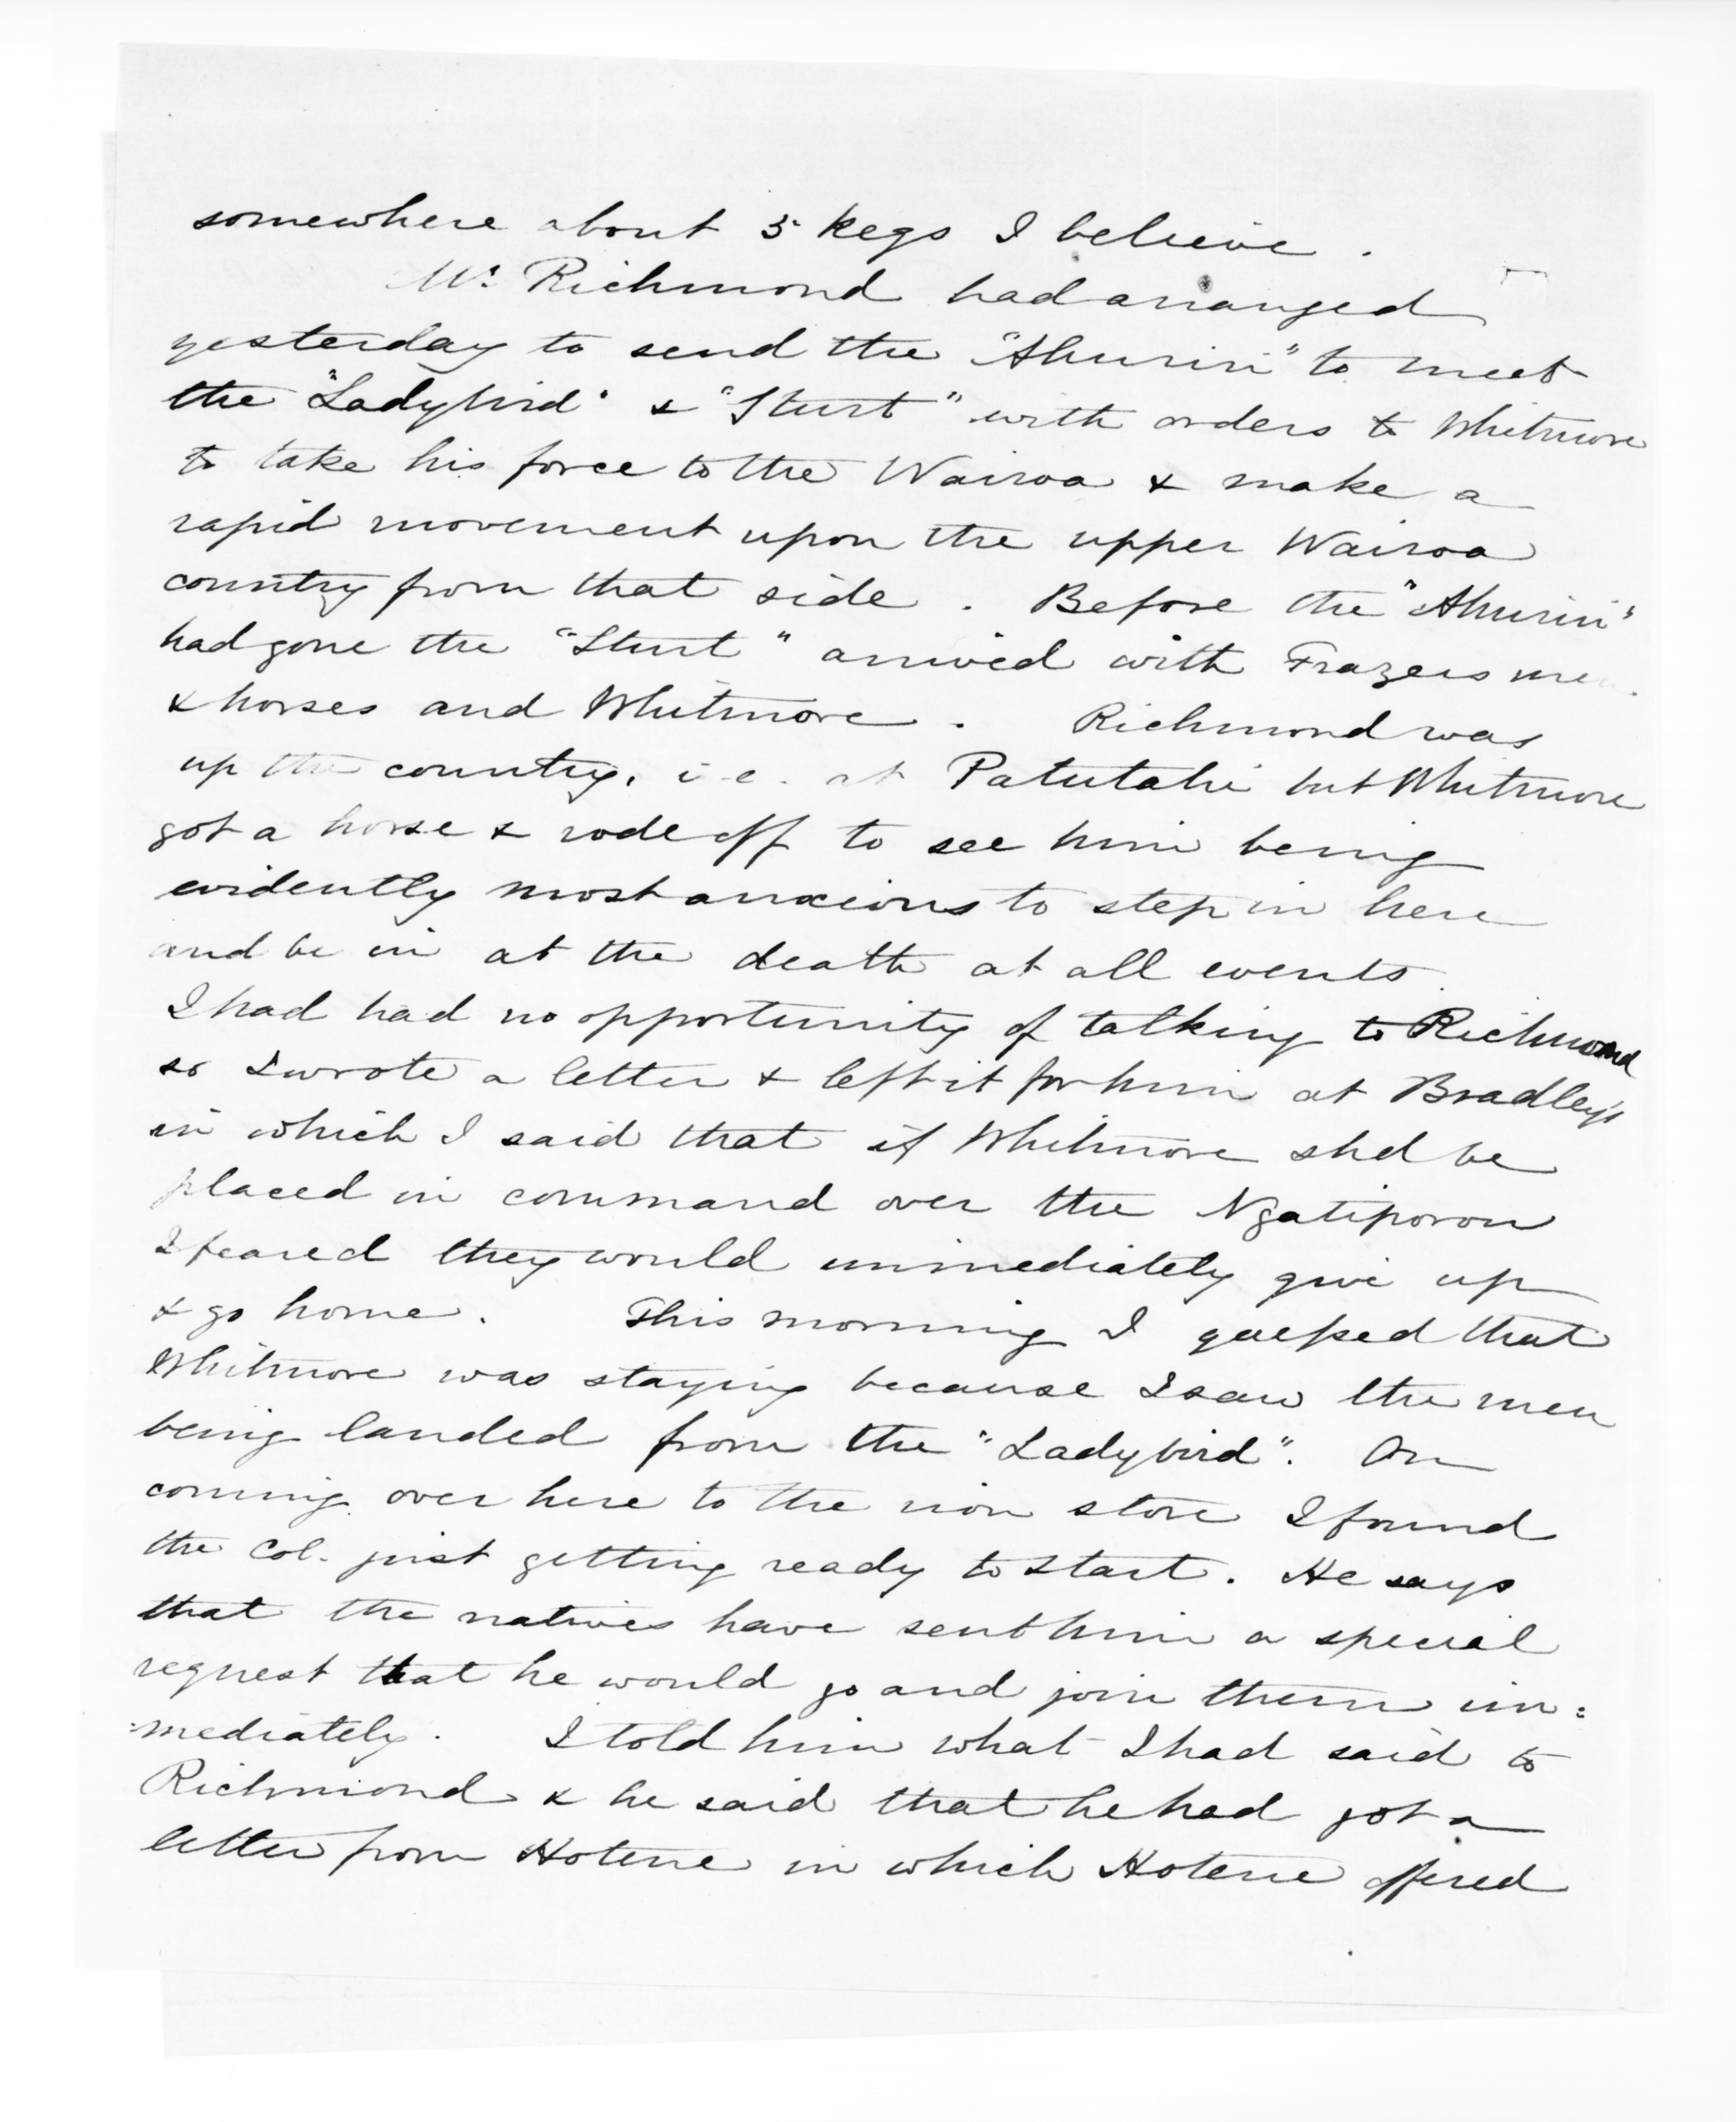 somewhere about 5 kegs I believe.
Mr. Richmond had arranged
yesterday to send the "Ahuriri" to meet
the "Ladybird" & "Sturt" with orders to Whitmore
to take his force to the Wairoa & make a
rapid movement upon the upper Wairoa
country from that side. Before the "Ahuriri"
had gone the "Sturt" arrived with Frazers men
& horses and Whitmore. Richmond was
up the country, i.e. at Patutahi but Whitmore
got a horse & rode off to see him being
evidently most anxious to step in here
and be in at the death at all events.
I had had no opportunity of talking to Richmond
so I wrote a letter & left it for him at Bradley's
in which I said that if Whitmore shd be
placed in command over the Ngatiporou
I feared they would immediately give up
& go home. This morning I guessed that
Whitmore was staying because I saw the men
being landed from the "Ladybird". On
coming over here to the iron store I found
the Col. just getting ready to start. He says
that the natives have sent him a special
request that he would go and join them im=
=mediately. I told him what I had said to
Richmond & he said that he had got a
letter from Hotene in which Hotene offered